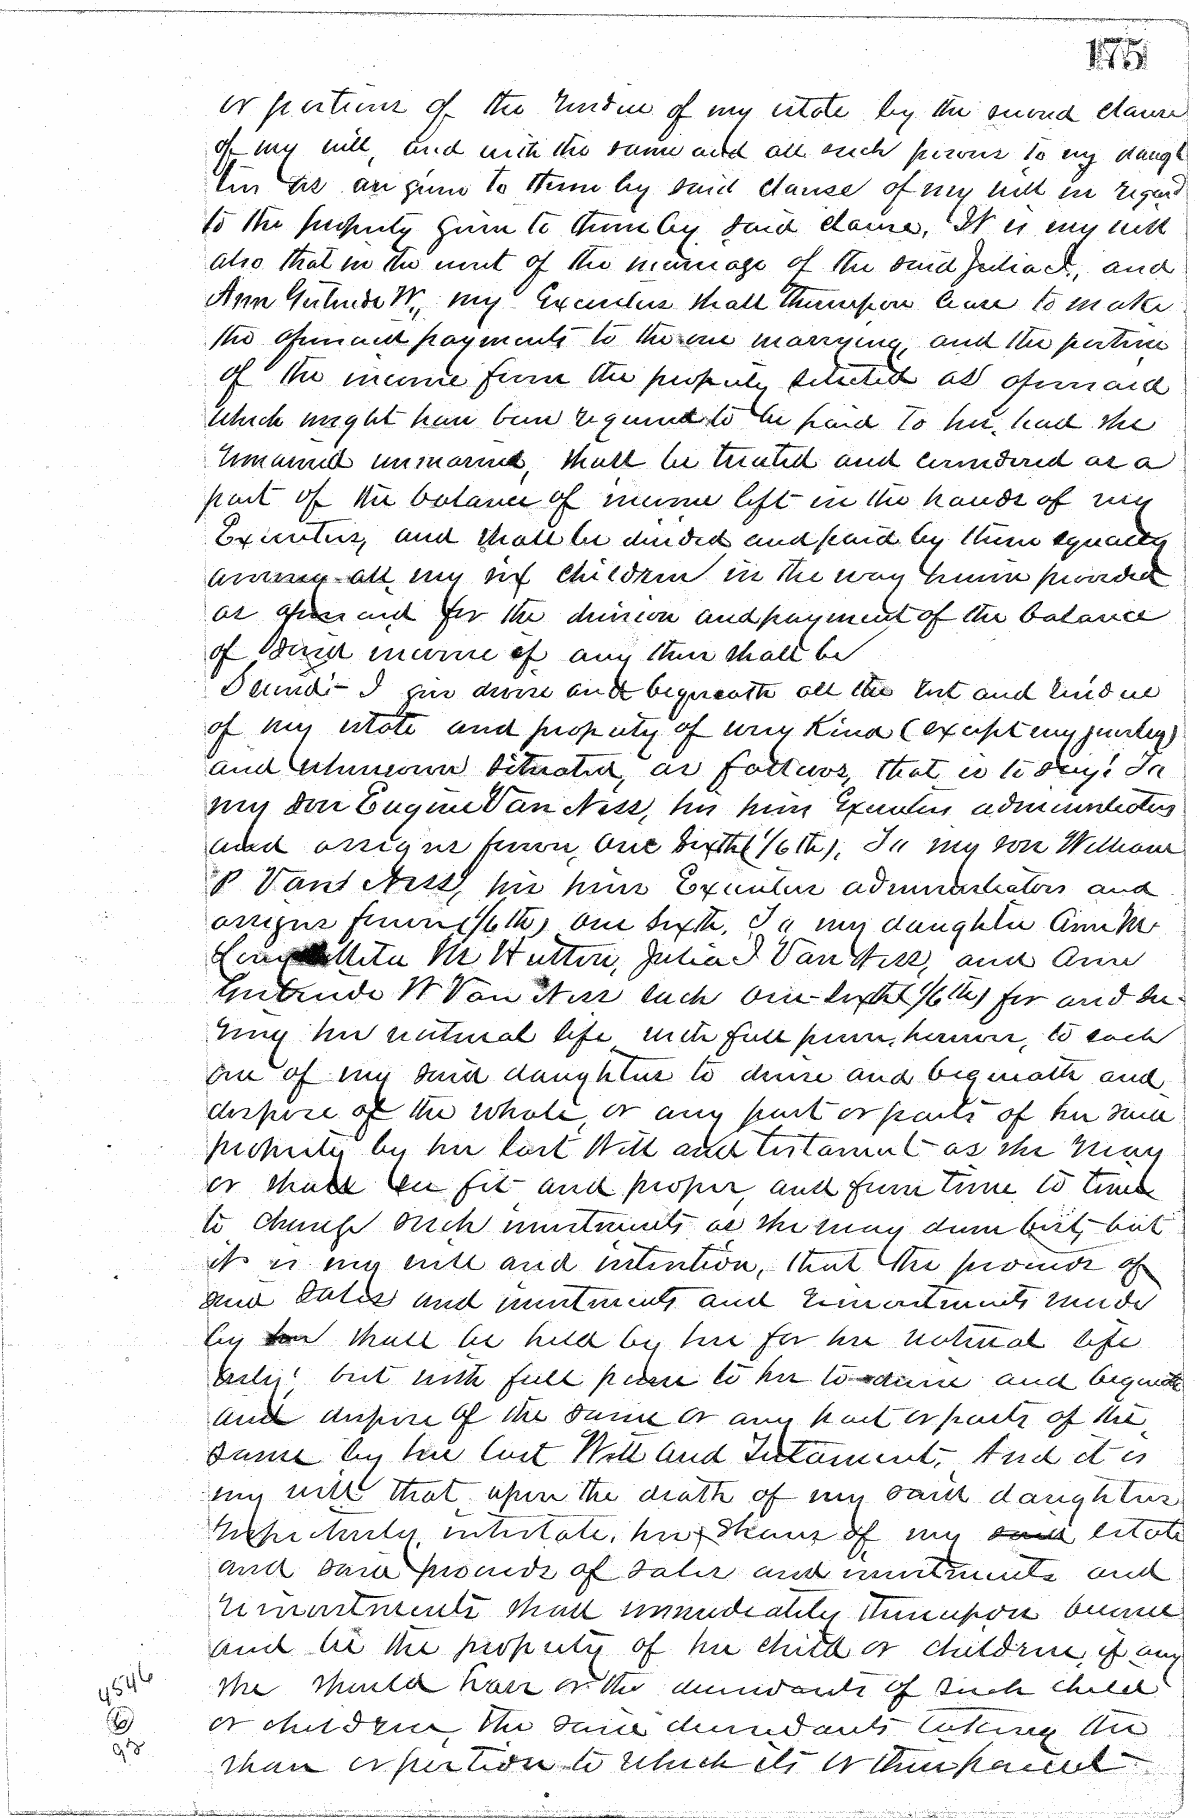 175
or portions of the residue of my estate by the second clause
of my will, and with the same and all such powers to my daugh
ters as are given to them by said clause of my will in regard
to the property given to them by said clause, It is my will
also that in the event of the marriage of the said Julia I., and
Ann Gertrude W., my Executors shall thereupon cease to make
the aforesaid payments to the one marrying, and the portion
of the income from the property selected as aforesaid
which might have been required to be paid to her, had she
remained unmarried, shall be treated and considered as a
part of the balance of income left in the hands of my
Executors, and shall be divided and paid by them equally
among all my six children in the way herein provided
as aforesaid for the division and payment of the balance
of said income if any there shall be
Second:- I give devise and bequeath all the rest and residue
of my estate and property of every Kind (except my jewelry)
and wheresoever situated, as follows, that is to say: To
my son Eugene Van Ness, his heirs Executors administrators
and assigns forever, one sixth (1/6th), To my son William
P Van Ness, his heirs Executors administrators and
assigns forever (1/6th) one sixth, To my daughter Ann M.
Meta M Hutton, Julia I Van Ness, and Ann
Gertrude W Van Ness each one-sixth (1/6th) for and du-
ring her natural life, with full power, however, to each
one of my said daughters to devise and bequeath and
dispose of the whole, or any part or parts of her said
property by her last Will and testament as she may
or shall see fit and proper, and from time to time
to change such investments as she may deem best, but
it is my will and intention, that the proceeds of
said sales and investments and reinvestments made
by her shall be held by her for her natural life
only; but with full power to her to devise and bequeath
and dispose of the same or any part or parts of the
same by her last Will and Testament, And it is
my will that upon the death of my said daughters
respectively, intestate, her shares of my said estate
and said proceeds of sales and investments and
reinvestments shall immediately thereupon become
and be the property of her child or children, if any
she should have or the descendants of such child
or children, the said descendants taking the
share or portion to which its or their parent
4546
6
92